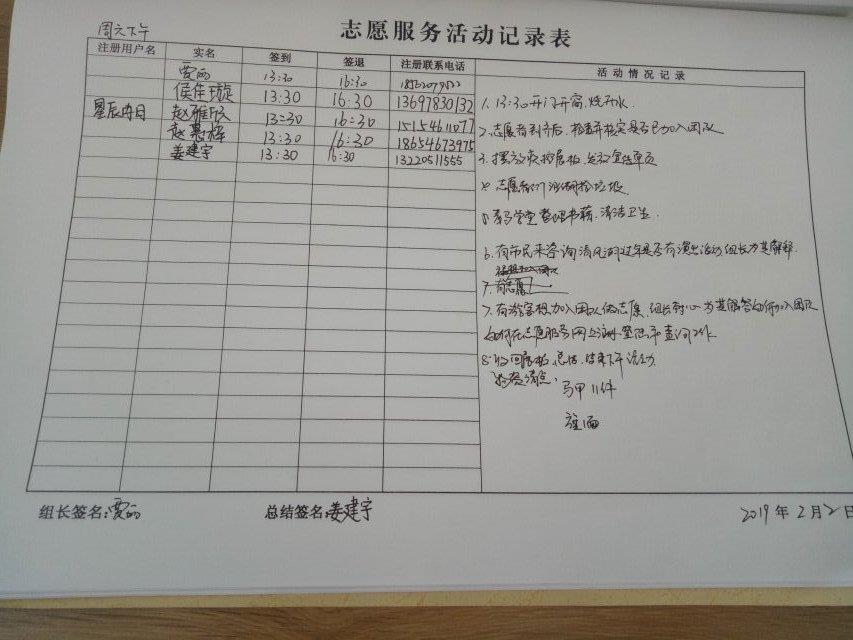 周六下午
志愿服务活动记录表
注册用户名 实名 签到 签退 注册联系电话 活动情况记录
贾丽 13:30 16:30
侯佳璇 13:30 16:30 13697830132
星辰 赵雅欣 13:30 16:30 15154611077
赵 辉 13:30 16:30 18654673975
姜建宇 13:30 16:30 13220511555
1. 13:30开门开窗,烧开水.
2. 志愿者到齐后,检查并核实是否已加入团队
3. 摆放 展板,发放宣传单页
4. 志愿者们 湖捡垃圾.
5. 整理书籍,清洁卫生.
6. 有市民来咨询清风湖过年是否有演出活动,组长为其解释.
7. 有志愿
7. 有游客想加入团队做志愿,组长耐心为其解答如何加入团队
如何在志愿服务网上注册、登陆和查询工作
8. 收回展板,总结,结束下午活动.
物资清点: 马甲11件
组长签名:贾丽 总结签名:姜建宇 2019年2月2日